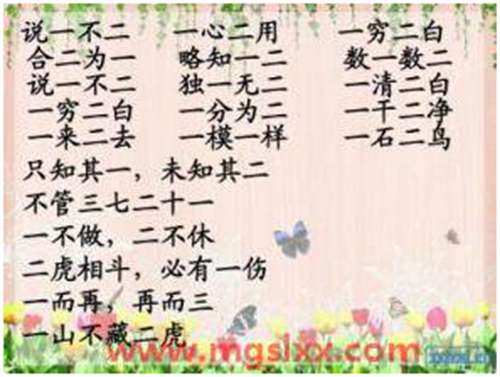 说一不二 一心二用 一穷二白
合二为一 略知一二 数一数二
说一不二 独一无二 一清二白
一穷二白 一分为二 一干二净
一来二去 一模一样 一石二鸟
只知其一，未知其二
不管三七二十一
一不做，二不休
二虎相斗，必有一伤
一而再，再而三
一山不藏二虎
www.mgslxx.com